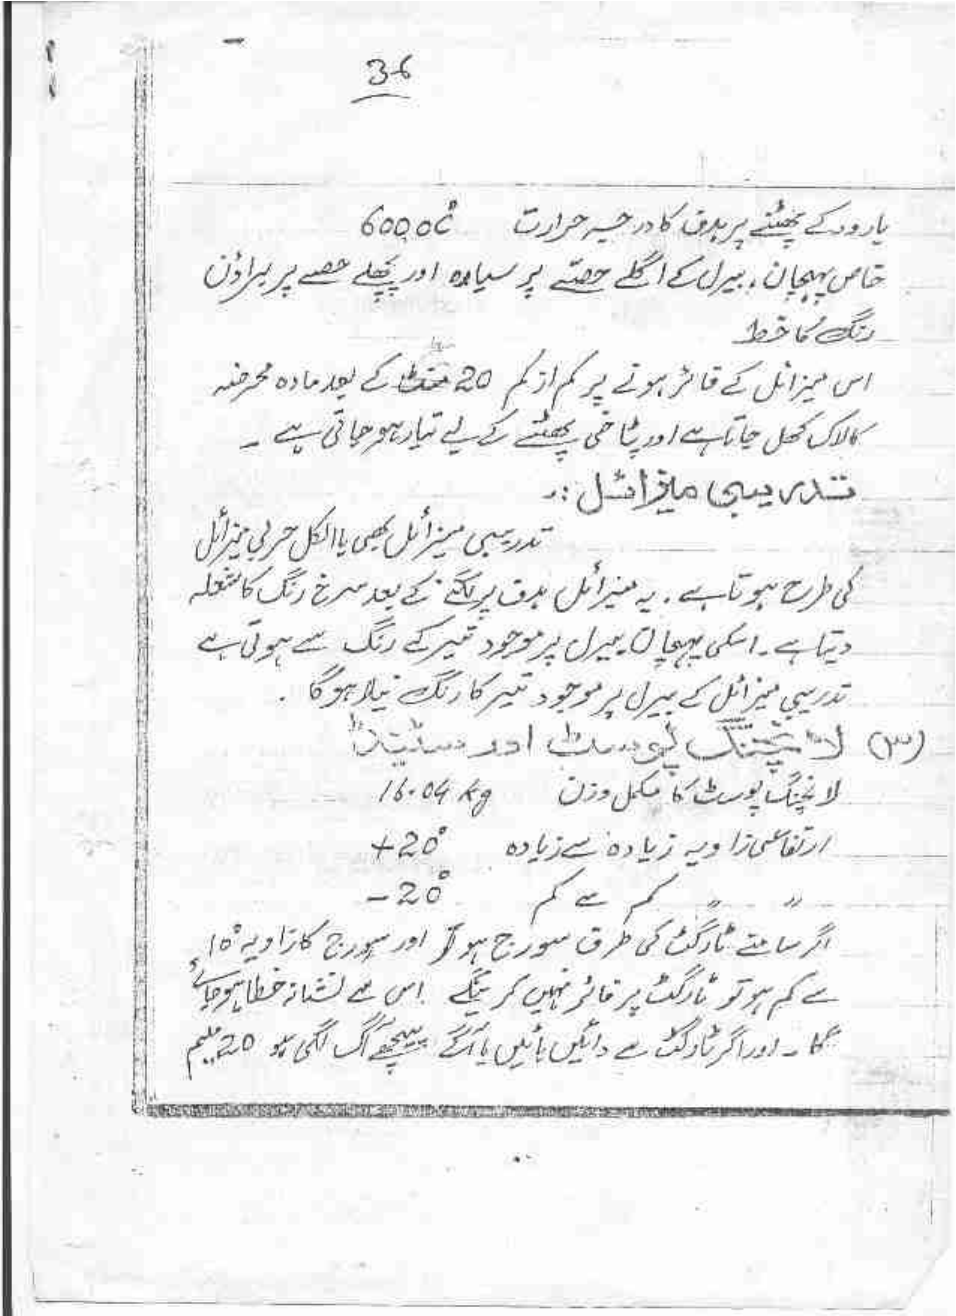 36
بارود کے پھٹنے پر ہدف کا درجہ حرارت 6000c°
خاص پہچان، بیرل کے اگلے حصّے پر سیاہ اور پچھلے حصے پر براؤن
رنگ کا خط
اس میزائل کے فائر ہونے پر کم از کم 20 کے بعد مادہ محرضہ
کا لاک کھل جاتا ہے اور پٹاخی پھٹنے کے لیے تیار ہو جاتی ہے ۔
تدریبی میزائل :۔
تدریبی میزائل بھی بالکل حربی میزائل
کی طرح ہوتا ہے ۔ یہ میزائل ہدف پر لگنے کے بعد سرخ رنگ کا شعلہ
دیتا ہے ۔ اسکی پہچان بیرل پر موجود تیر کے رنگ سے ہوتی ہے
تدریبی میزائل کے بیرل پر موجود تیر کا رنگ نیلا ہو گا ۔
(۳) لانچنگ پوسٹ اور سٹینڈ
لانچنگ پوسٹ کا مکمل وزن 16.04 kg
ارتفاعی زاویہ زیادہ سے زیادہ +20°
〃 〃 کم سے کم -20°
اگر سامنے ٹارگٹ کی طرف سورج ہو تو اور سورج کا زاویہ 10°
سے کم ہو تو ٹارگٹ پر فائر نہیں کرینگے اس سے نشانہ خطا ہو جائے
گا ۔ اور اگر ٹارگٹ سے دائیں بائیں یا آگے پیچھے آگ لگی ہو 20 ملیم